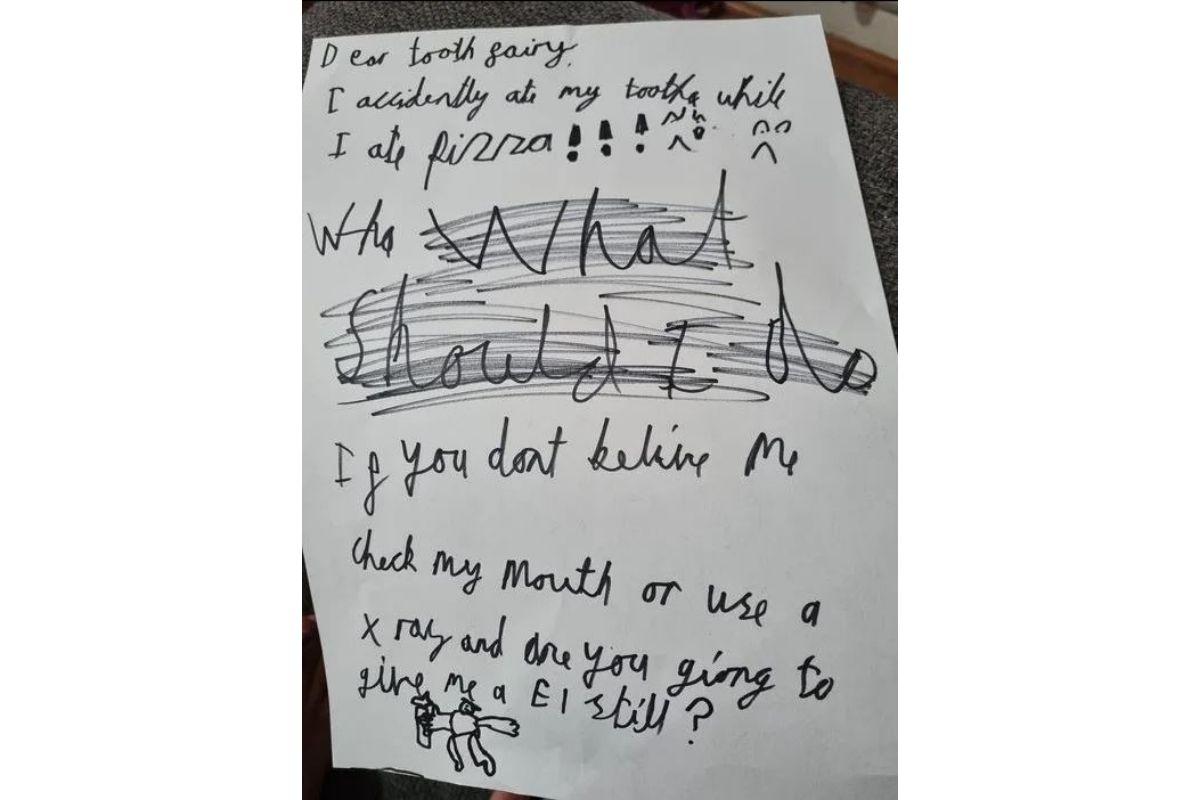 Dear tooth fairy.
I accidently ate my tooth while
I ate pizza!!!
Wha What
Should I do
If you dont belive Me
check my Mouth or use a
x ray and are you giong to
give me a £1 still?